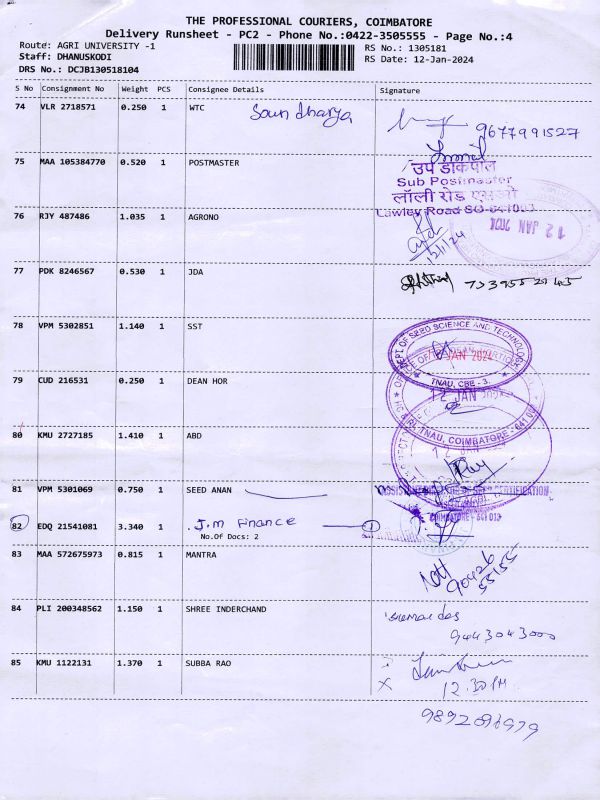 THE PROFESSIONAL COURIERS, COIMBATORE
Delivery Runsheet - PC2 - Phone No.:0422-3505555 - Page No.:4
Route: AGRI UNIVERSITY -1
RS No.: 1305181
Staff: DHANUSKODI
RS Date: 12-Jan-2024
DRS No.: DCJB130518104
S No Consignment No Weight PCS Consignee Details Signature
74 VLR 2718571 0.250 1 WTC Soundharya
9677991527
75 MAA 105384770 0.520 1 POSTMASTER
उप डाकपाल
Sub Postmaster
लॉली रोड एस.ओ
Lawley Road SO-641003
76 RJY 487486 1.035 1 AGRONO
12 JAN 2024
12/1/24
77 PDK 8246567 0.530 1 JDA
78 VPM 5302851 1.140 1 SST
DEPT OF SEED SCIENCE AND TECHNOLOGY
JAN 2024
TNAU, CBE - 3.
79 CUD 216531 0.250 1 DEAN HOR
12 JAN
80 KMU 2727185 1.410 1 ABD
TNAU, COIMBATORE - 641 003
81 VPM 5301069 0.750 1 SEED ANAN
SEED CERTIFICATION
COIMBATORE - 641 013
82 EDQ 21541081 3.340 1 J.M Finance 1
No.Of Docs: 2
83 MAA 572675973 0.815 1 MANTRA
90426
55155
84 PLI 200348562 1.150 1 SHREE INDERCHAND
9443043000
85 KMU 1122131 1.370 1 SUBBA RAO
12.30 PM